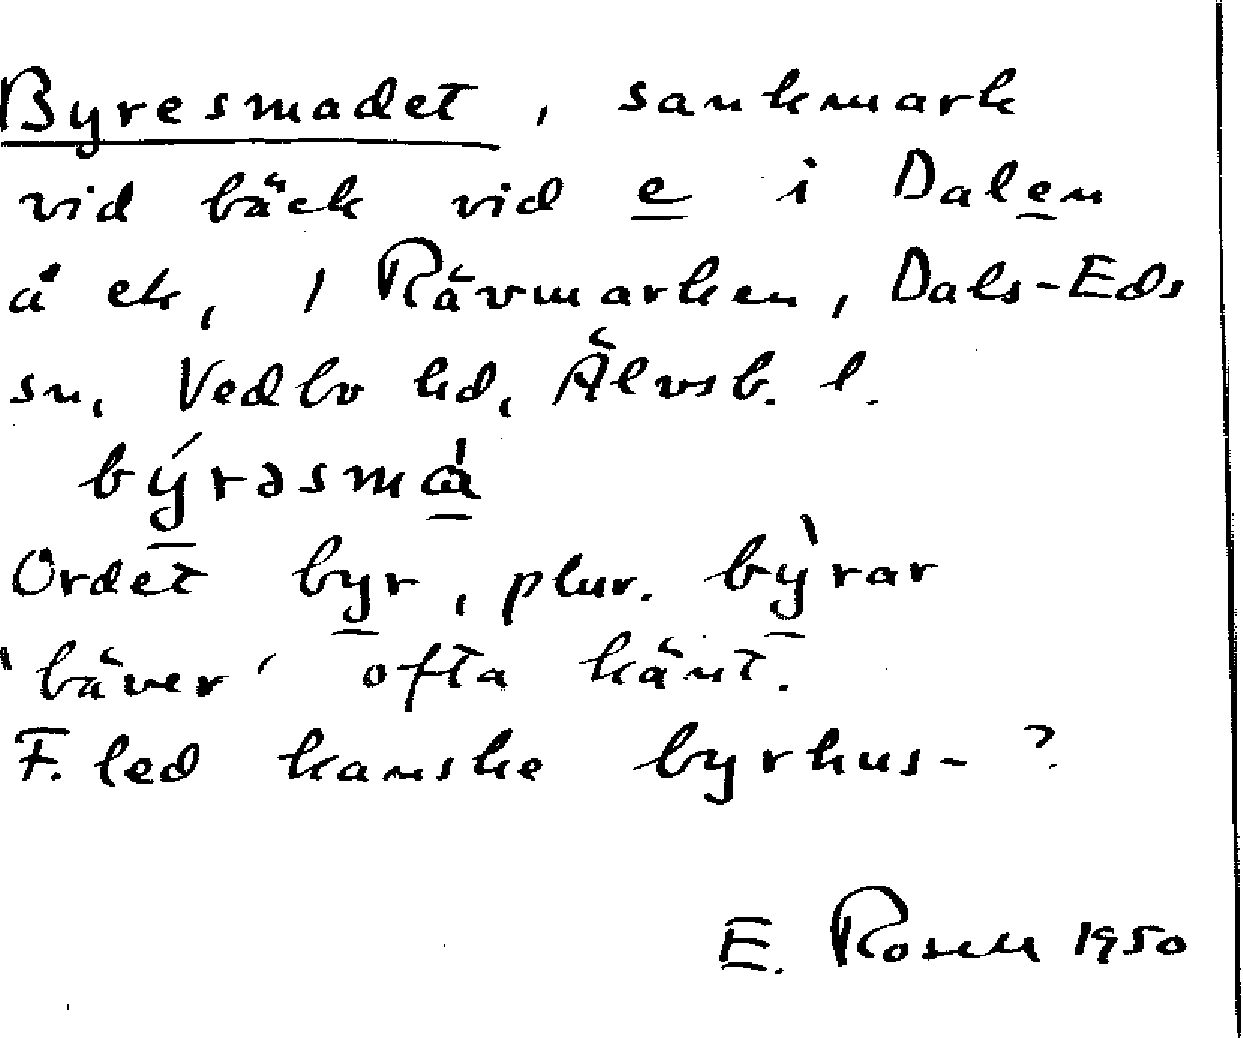 Byresmadet, sankmark
vid bäck vid e i Dalen
å ek, 1 Rävmarken, Dals-Eds
sn, Vedbo hd, Älvsb. l.
býrəsmå̀
Ordet byr, plur. bỳrar
'bäver' ofta känt.
F. led kanske byrhus-?
E. Rosell 1950